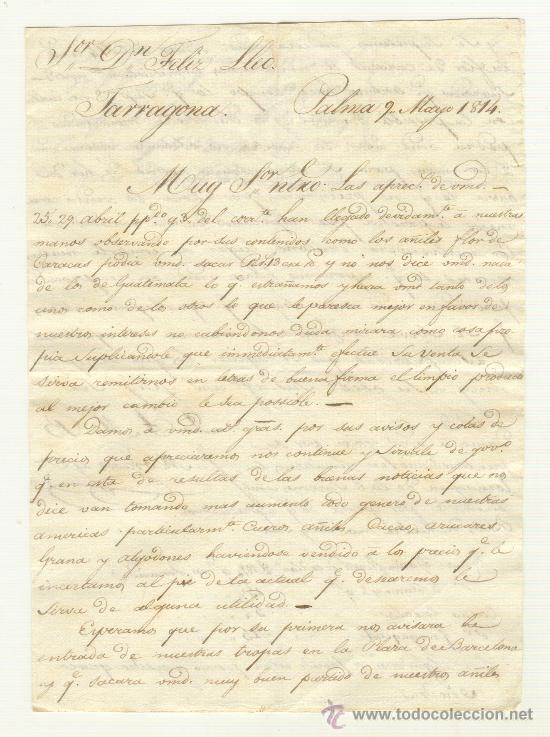 Sor. Dn Feliz Llec.
Tarragona. Palma 9 Mayo 1814.
Muy Sor. ntro: Las aprec.s de vmd.
25, 29, abril pp.do y 3 del corr.te han llegado devidam.te á nuestras
manos observando por sus contenidos como los aniles flor de
Caracas podia vmd. sacar y no nos dice vmd. nada
de los de Guatemala lo q.e estrañamos y hara vmd tanto de los
unos como de los otros lo que le paresca mejor en favor de
nuestros intereses no cabiendonos duda mirara como cosa pro
pia suplicandole que immediatam.te efectue su venta se
serva remitirnos en letras de buena firma el limpio producto
al mejor cambio le sea possible.
Damos á vmd. gras. por sus avisos y cotas de
precios que apreciaremos nos continue y sirvale de gov.o
q.e en esta de resultas de las buenas noticias que nos
dice van tomando mas aumento todo genero de nuestras
americas particularm.te Cueros añiles, Cacao, azucares,
Grana y algodones haviendose vendido a los precios q.e le
incertamos al pie de la actual q.e desearemos le
serva de alguna utilidad.
Esperamos que por su primera nos avisara la
entrada de nuestras tropas en la Plaza de Barcelona
y q.e sacara vmd. muy buen partido de nuestros añiles
todocoleccion
www.todocoleccion.net